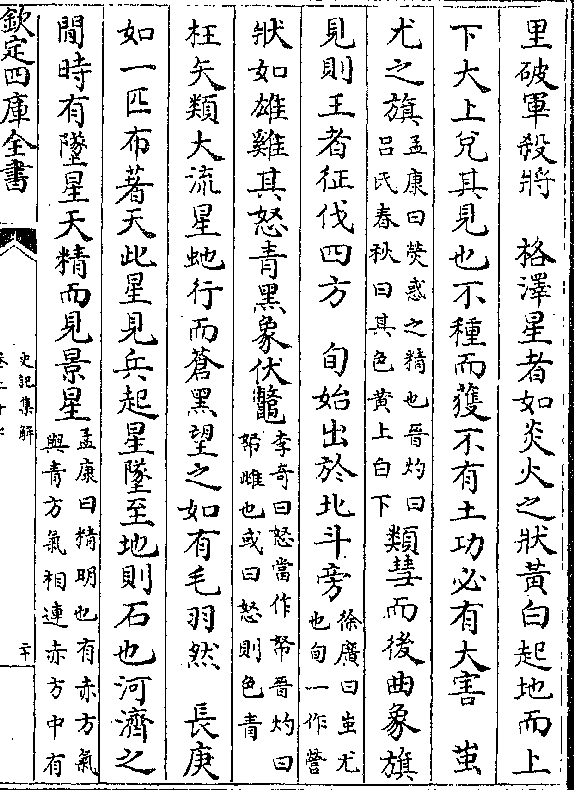 里破軍殺將　格澤星者如炎火之狀黄白起地而上
下大上兌其見也不種而獲不有土功必有大害　蚩
尤之旗孟康曰熒惑之精也晉灼曰吕氏春秋曰其色黄上白下類彗而後曲象旗
見則王者征伐四方　旬始出於北斗旁徐廣曰蚩尤也旬一作營
狀如雄雞其怒青黑象伏鼈李奇曰怒當作帑晉灼曰帑雌也或曰怒則色青
枉矢類大流星虵行而蒼黑望之如有毛羽然　長庚
如一匹布著天此星見兵起星墜至地則石也河濟之
間時有墜星天精而見景星孟康曰精明也有赤方氣與青方氣相連赤方中有
欽定四庫全書
史記集解
卷二十七
二十